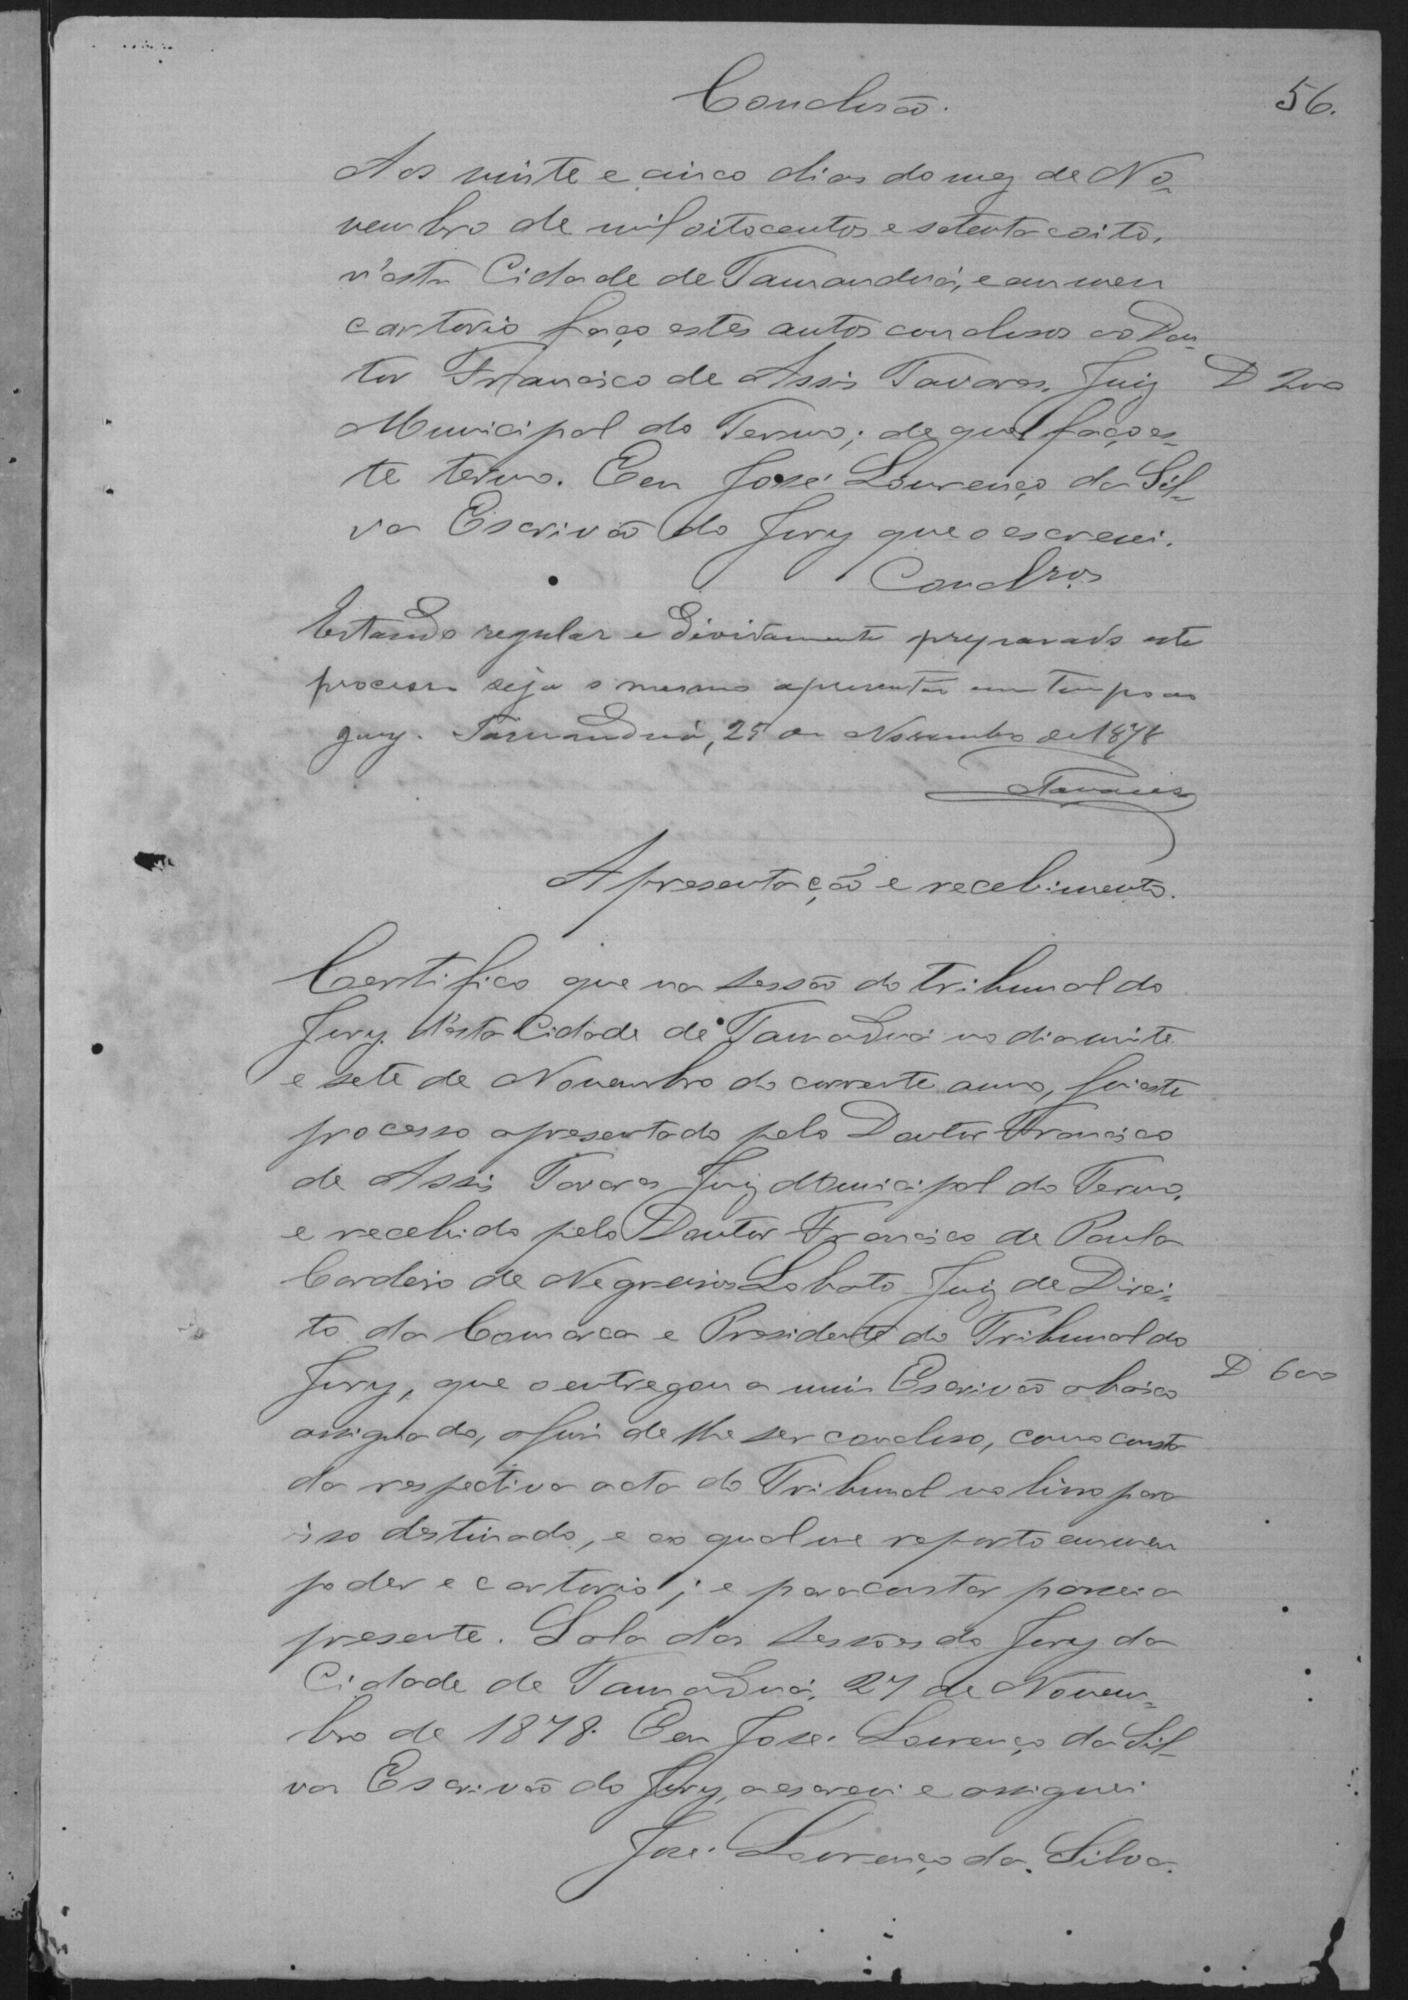 Conclusão.
56.
Aos vinte e cinco dias do mez de No-
vembro de mil oitocentos e setenta e oito,
n'esta Cidade de Tamanduá, e em meu
cartorio faço estes autos conclusos ao Dou-
tor Francisco de Assis Tavares, Juiz
D 200
Municipal do Termo; de que faço es-
te termo. Eeu José Lourenço da Sil-
va Escrivão do Jury que o escrevi.
Conclzos
Estando regular e dividamente preparado este
processo seja o mesmo apresentado em tempo ao
jury. Tamanduá, 25 de Novembro de 1878
Tavares
Apresentação e recebimento.
Certifico que na sessão do tribunal do
Jury d'esta Cidade de Tamaduá no dia vinte
e sete de Novembro do corrente anno, foi este
processo apresentado pelo Doutor Francisco
de Assis Tavares Juiz Municipal do Termo,
e recebido pelo Doutor Francisco de Paula
Cordeiro de Negreiros Lobato Juiz de Direi-
to da Comarca e Presidente do Tribunal do
Jury, que o entregou a mim Escrivão abaixo
D 600
assignado, afim de lhe ser concluso, como consta
da respectiva acta do Tribunal no livro para
isso destinado, e ao qual me reporto em meu
poder e cartorio; e para constar passei a
presente. Sala das Sessões do Jury da
Cidade de Tamaduá, 27 de Novem-
bro de 1878. Eeu José Lourenço da Sil-
va Escrivão do Jury, o escrevi e assignei
José Lourenço da Silva.